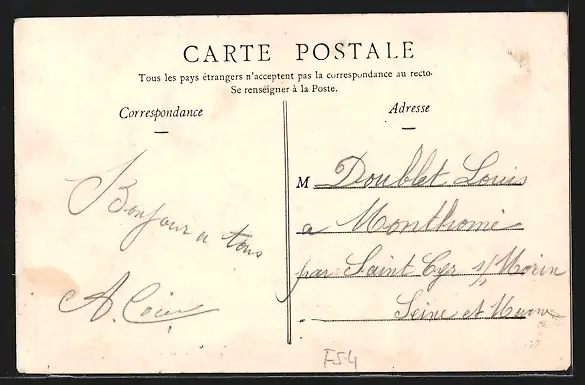 CARTE POSTALE
Tous les pays étrangers n'acceptent pas la correspondance au recto.
Se renseigner à la Poste.
Correspondance
Bonjour a tous
A.
Adresse
M Doublet Louis
a Monthomé
par Saint Cyr s/ Morin
Seine et Marne
F54